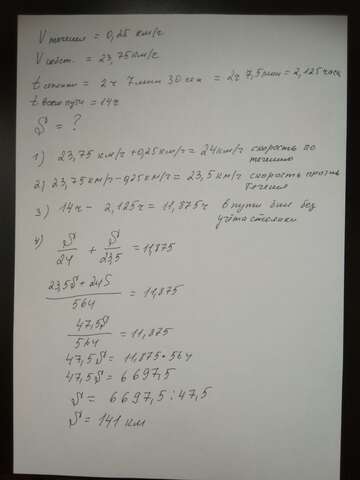 V течения = 0,25 км/ч
V собст. = 23,75 км/ч
t стоянки = 2ч 7мин 30 сек = 2ч 7,5мин = 2,125 часа
t всего пути = 14ч
S = ?
1) 23,75 км/ч + 0,25 км/ч = 24 км/ч скорость по
течению
2) 23,75 км/ч - 0,25 км/ч = 23,5 км/ч скорость против
течения
3) 14ч - 2,125ч = 11,875ч в пути был без
учёта стоянки
4) S/24 + S/23,5 = 11,875
23,5S + 24S / 564 = 11,875
47,5S / 564 = 11,875
47,5S = 11,875 * 564
47,5S = 6697,5
S = 6697,5 : 47,5
S = 141 км